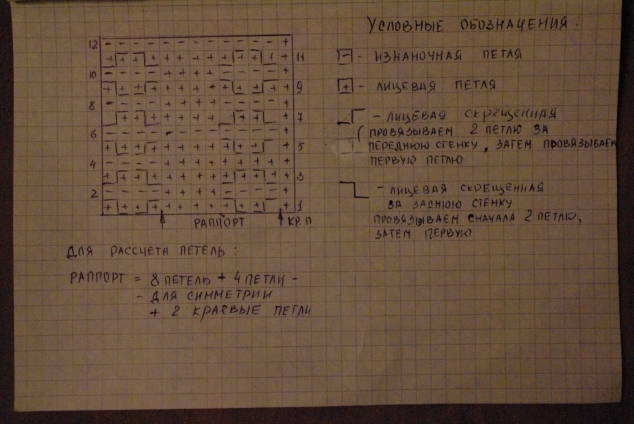 УСЛОВНЫЕ ОБОЗНАЧЕНИЯ:
- ИЗНАНОЧНАЯ ПЕТЛЯ
+ - ЛИЦЕВАЯ ПЕТЛЯ
- ЛИЦЕВАЯ СКРЕЩЕННАЯ
(ПРОВЯЗЫВАЕМ 2 ПЕТЛЮ ЗА
ПЕРЕДНЮЮ СТЕНКУ, ЗАТЕМ ПРОВЯЗЫВАЕМ
ПЕРВУЮ ПЕТЛЮ
- ЛИЦЕВАЯ СКРЕЩЕННАЯ
ЗА ЗАДНЮЮ СТЕНКУ
ПРОВЯЗЫВАЕМ СНАЧАЛА 2 ПЕТЛЮ,
ЗАТЕМ ПЕРВУЮ
12
11
10
9
8
7
6
5
4
3
2
1
РАППОРТ КР.П
ДЛЯ РАССЧЕТА ПЕТЕЛЬ:
РАППОРТ = 8 ПЕТЕЛЬ + 4 ПЕТЛИ -
- ДЛЯ СИММЕТРИИ
+ 2 КРАЕВЫЕ ПЕТЛИ